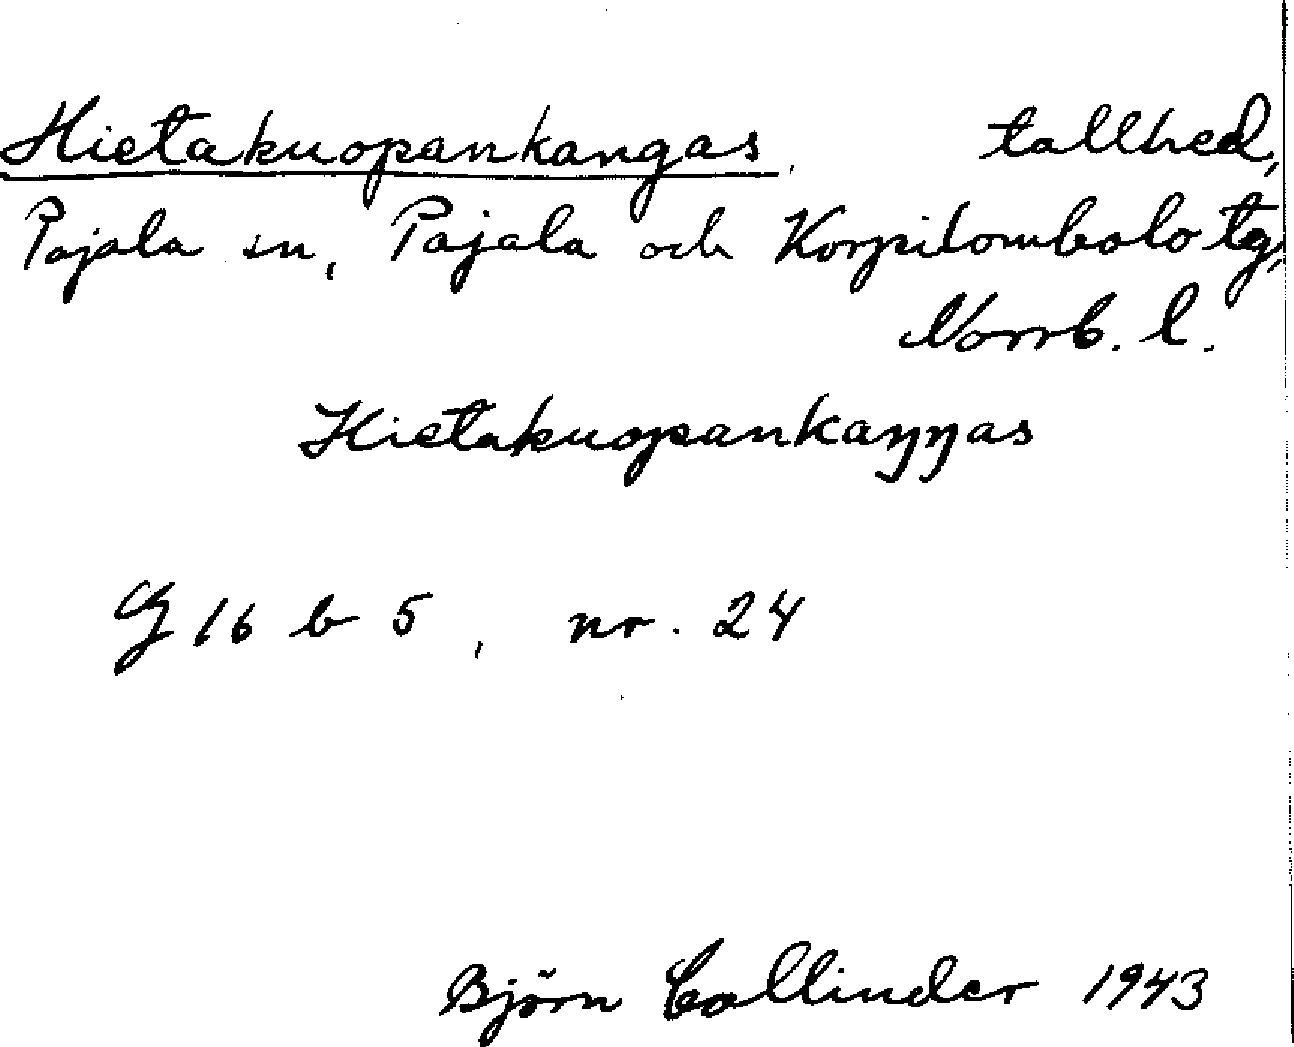 Hietakuopankangas, tallhed,
Pajala sn, Pajala och Korpilombolo tg,
Norrb. l.
Hietakuopankaŋŋas
G 16 b 5, nr. 24
Björn Collinder 1943